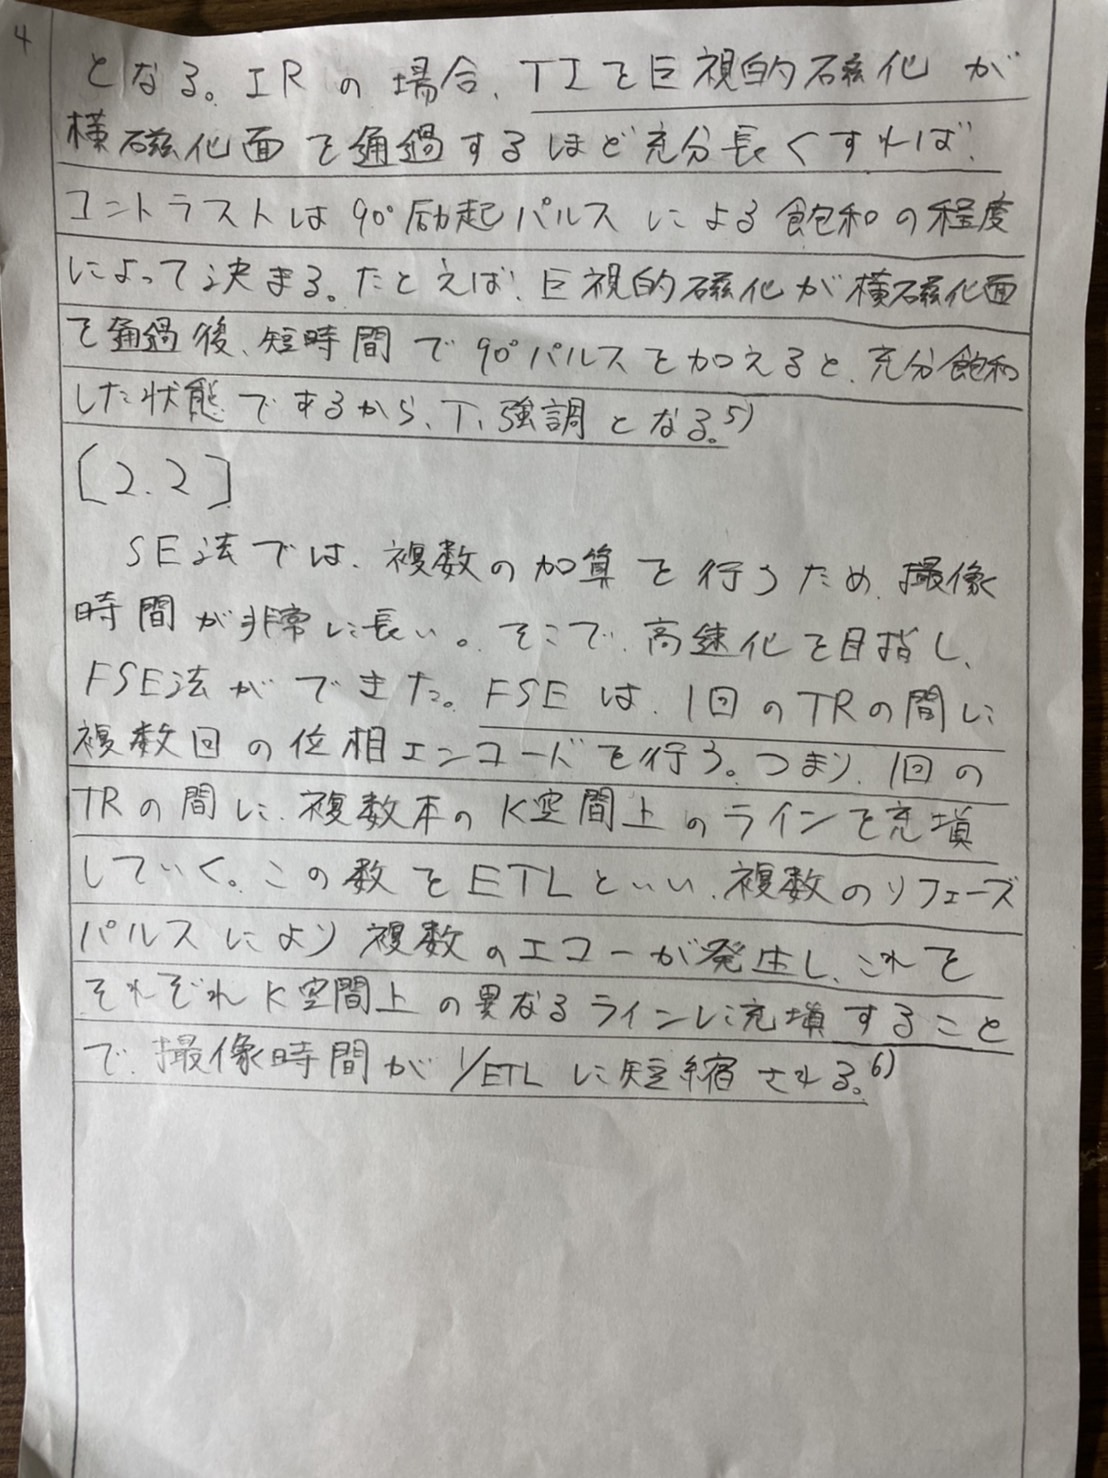 4
となる。IRの場合、TIを巨視的磁化が
横磁化面を通過するほど充分長くすれば、
コントラストは90°励起パルスによる飽和の程度
によって決まる。たとえば、巨視的磁化が横磁化面
を通過後、短時間で90°パルスを加えると、充分飽和
した状態でするから、T1強調となる。5)
[2.2]
SE法では、複数の加算を行うため、撮像
時間が非常に長い。そこで、高速化を目指し、
FSE法ができた。FSEは、1回のTRの間に
複数回の位相エンコードを行う。つまり、1回の
TRの間に、複数本のK空間上のラインを充塡
していく。この数をETLといい、複数のリフェーズ
パルスにより複数のエコーが発生し、これを
それぞれK空間上の異なるラインに充塡すること
で、撮像時間が1/ETLに短縮される。6)